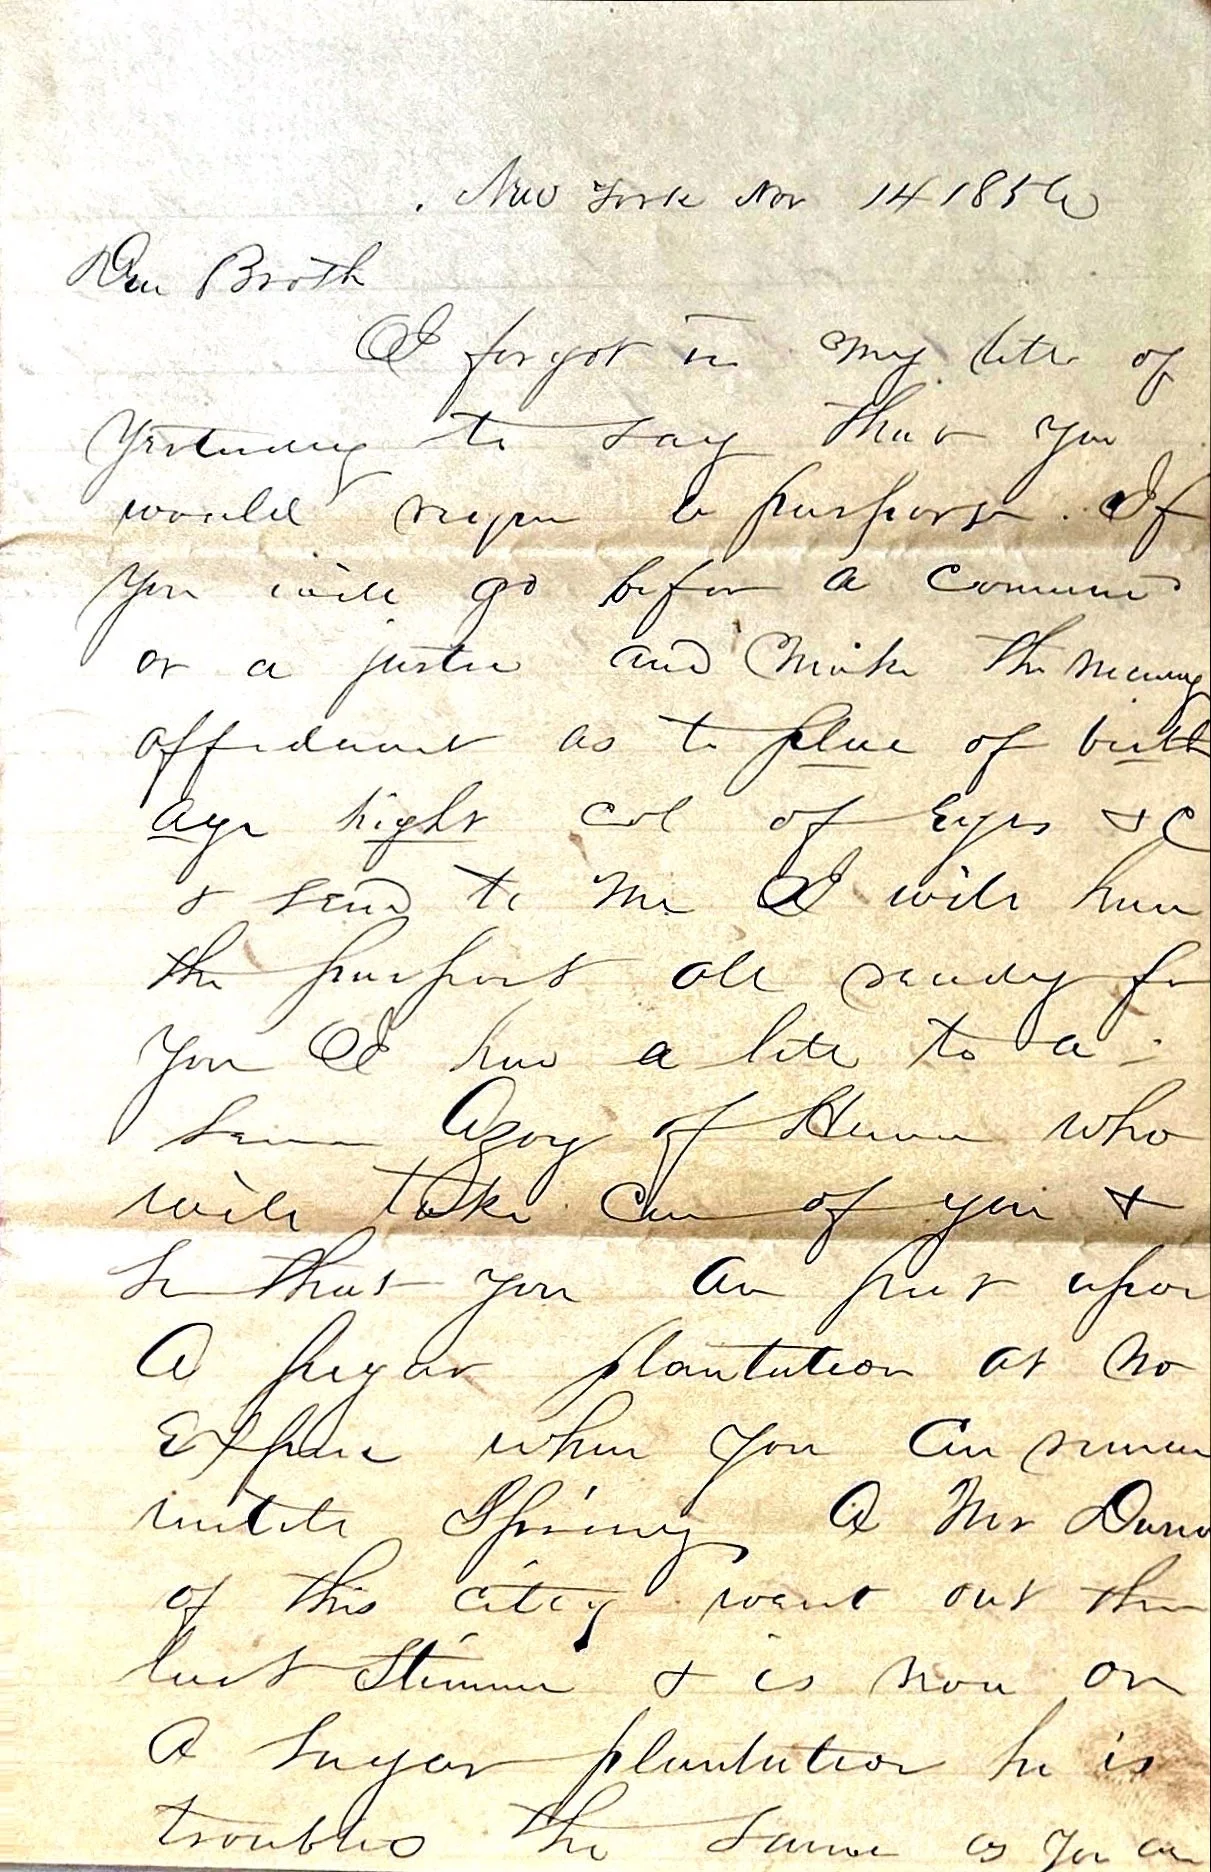 New York Nov 14 1856
Dear Broth
I forgot in my letter of
yesterday to say that you
would require a passport. If
you will go before a
or a justice and make the necessary
affidavit as to place of birth
age hight col of Eyes & C
& send to me I will have
the passport all ready for
you I have a letter to a
Senor of Havana who
will take care of you &
see that you are put upon
A sugar plantation at no
Expense when you can remain
untill Spring A Mr
of this city went out there
last Steamer & is now on
A Sugar plantation he is
troubled the same as you are